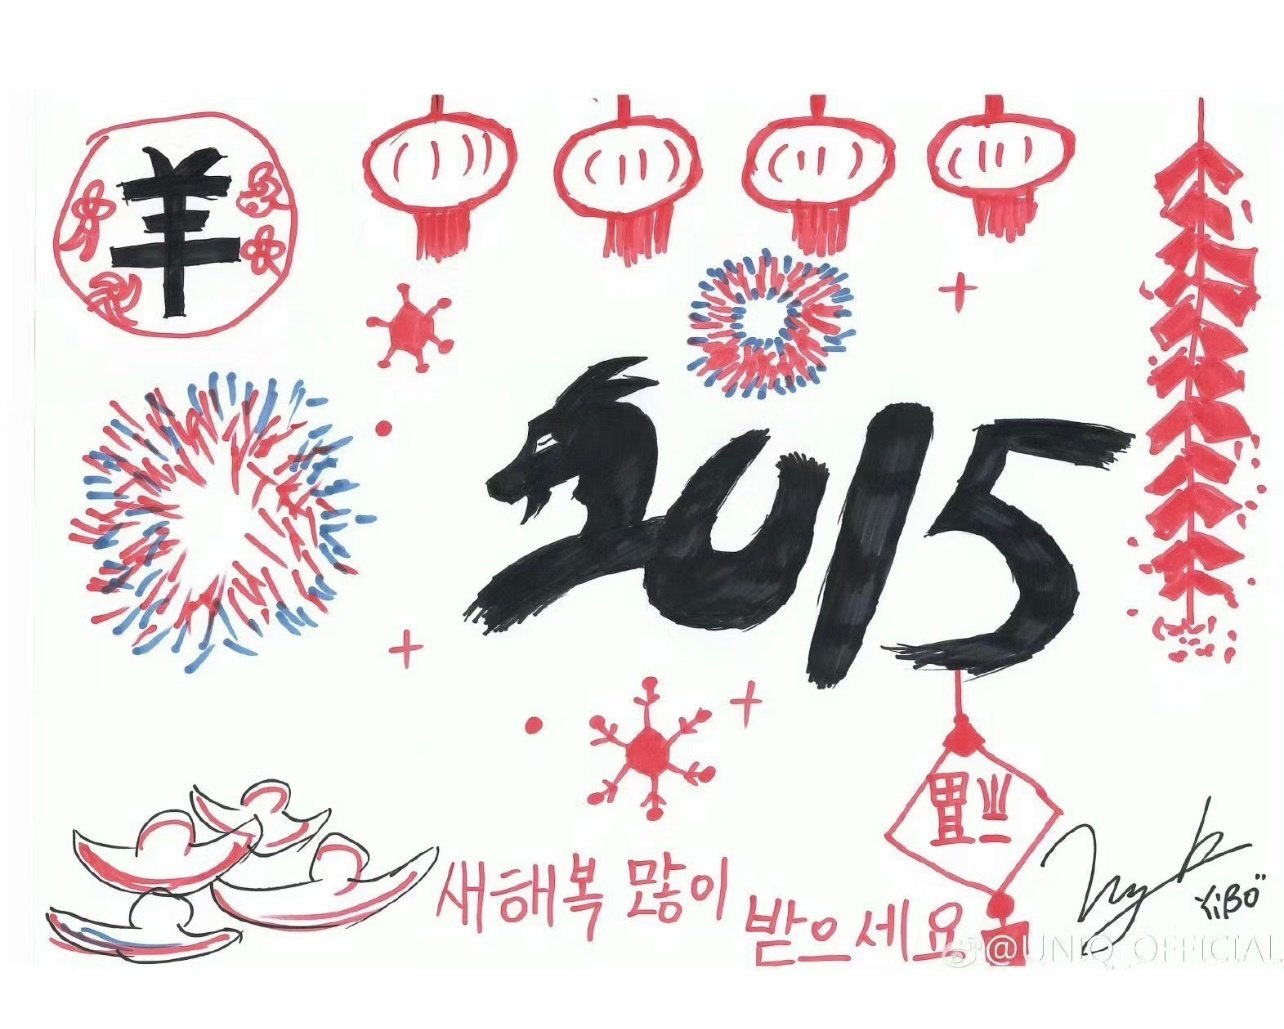 羊
2015
福
새해 복 많이
받으세요
YiBO
@UNIQ_OFFICIAL